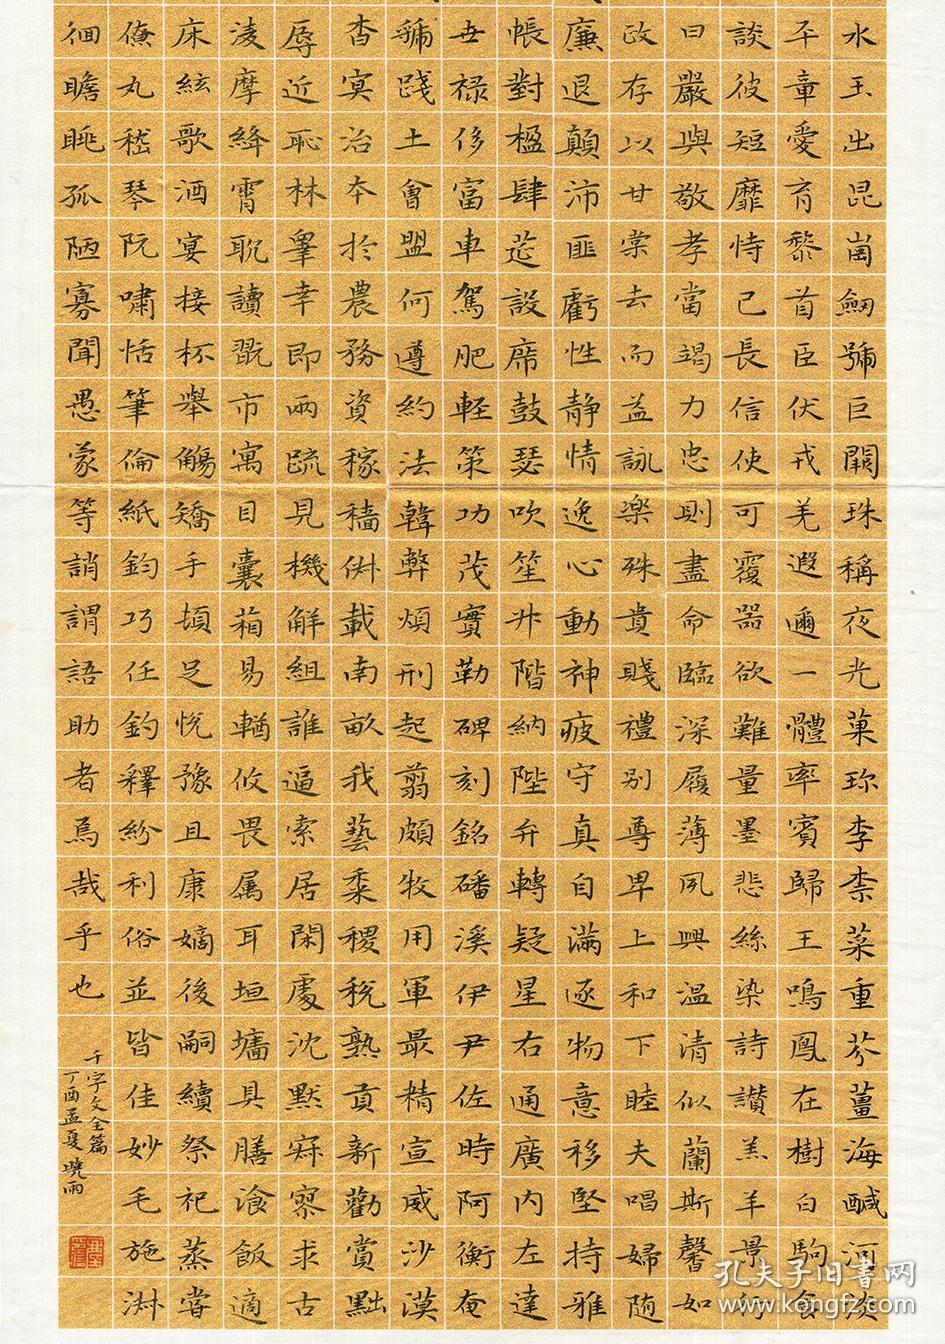 水玉出昆崗劒號巨闕珠稱夜光菓珎李柰菜重芥薑海鹹河淡
平章愛育黎首臣伏戎羌遐邇一體率賓歸王鳴鳳在樹白駒食
談彼短靡恃己長信使可覆器欲難量墨悲絲染詩讚羔羊景行
曰嚴與敬孝當竭力忠則盡命臨深履薄夙興温清似蘭斯馨如
政存以甘棠去而益詠樂殊貴賤禮別尊卑上和下睦夫唱婦随
廉退顛沛匪虧性静情逸心動神疲守真自滿逐物意移堅持雅
帳對楹肆莚設席鼓瑟吹笙升階納陛弁轉疑星右通廣内左達
世禄侈富車駕肥軽策功茂實勒碑刻銘磻溪伊尹佐時阿衡奄
虢踐土會盟何遵約法韓弊煩刑起翦頗牧用軍最精宣威沙漠
杳冥治本於農務資稼穡俶載南畝我藝黍稷税熟貢新勸賞黜
辱近恥林皋幸即兩疏見機解組誰逼索居閑處沈默寂寥求古
淩摩絳霄耽讀翫市寓目囊箱易輶攸畏属耳垣墻具膳飡飯適
床絃歌酒宴接杯舉觴矯手頓足悦豫且康嫡後嗣續祭祀蒸嘗
僚丸嵇琴阮嘯恬筆倫紙鈞巧任釣釋紛利俗並皆佳妙毛施淑
徊瞻眺孤陋寡聞愚蒙等誚謂語助者焉哉乎也
千字文全篇
丁酉孟夏 曉雨
孔夫子旧書网
www.kongfz.com